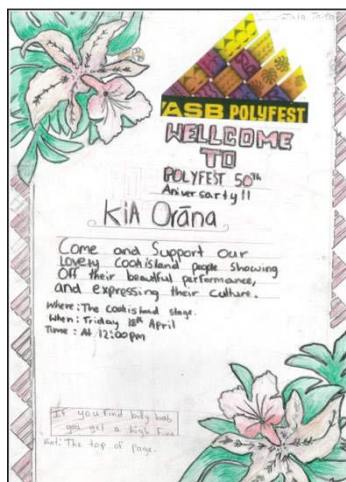 ASB POLYFEST
WELLCOME
TO
POLYFEST 50th
Aniversarty!!
Kia Orāna
Come and Support our
lovely Cookisland people showing
Off their beautiful performance,
and expressing their culture.
Where: The Cookisland stage.
When: Friday 18th April
Time: At 12:00pm
If you find billy bob
you get a high five
Hint: The top of page.